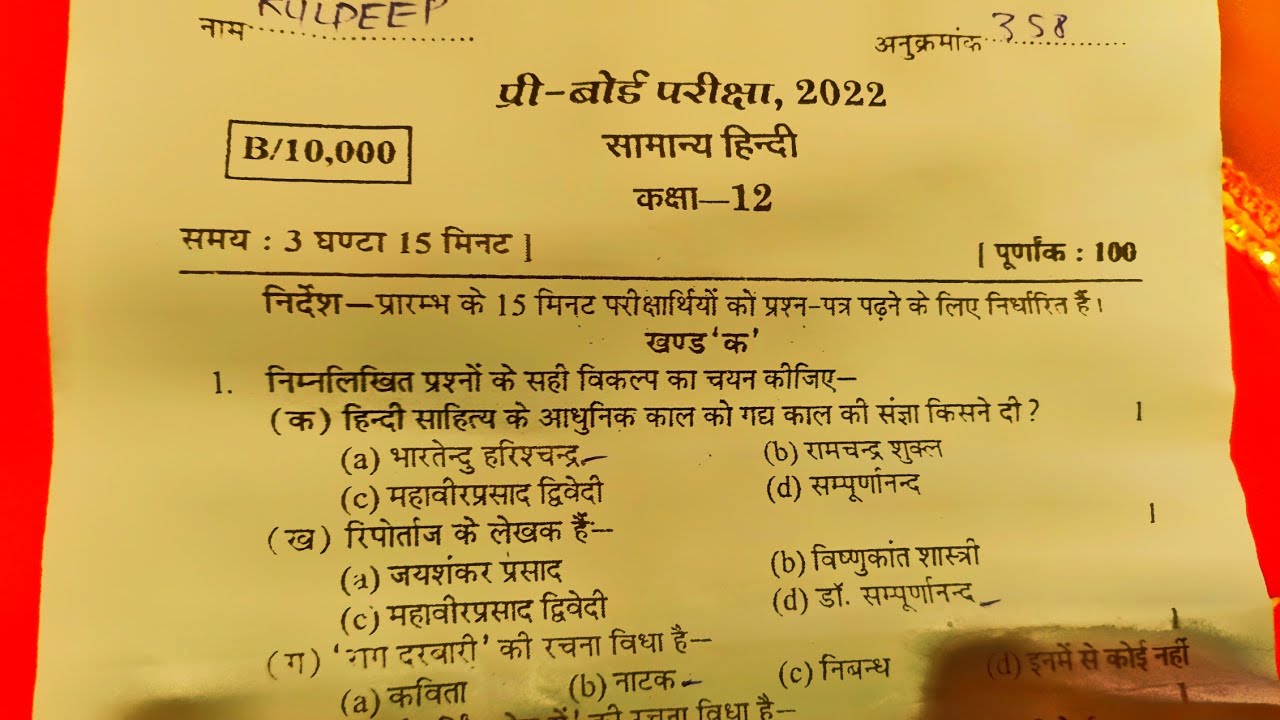 नाम KULDEEP
अनुक्रमांक 358
प्री-बोर्ड परीक्षा, 2022
B/10,000
सामान्य हिन्दी
कक्षा—12
समय : 3 घण्टा 15 मिनट ]
[ पूर्णांक : 100
निर्देश—प्रारम्भ के 15 मिनट परीक्षार्थियों को प्रश्न-पत्र पढ़ने के लिए निर्धारित हैं।
खण्ड 'क'
1. निम्नलिखित प्रश्नों के सही विकल्प का चयन कीजिए—
(क) हिन्दी साहित्य के आधुनिक काल को गद्य काल की संज्ञा किसने दी ? 1
(a) भारतेन्दु हरिश्चन्द्र (b) रामचन्द्र शुक्ल
(c) महावीरप्रसाद द्विवेदी (d) सम्पूर्णानन्द
(ख) रिपोर्ताज के लेखक हैं— 1
(a) जयशंकर प्रसाद (b) विष्णुकांत शास्त्री
(c) महावीरप्रसाद द्विवेदी (d) डॉ. सम्पूर्णानन्द
(ग) 'राग दरबारी' की रचना विधा है— 1
(a) कविता (b) नाटक (c) निबन्ध (d) इनमें से कोई नहीं
की रचना विधा है— 1